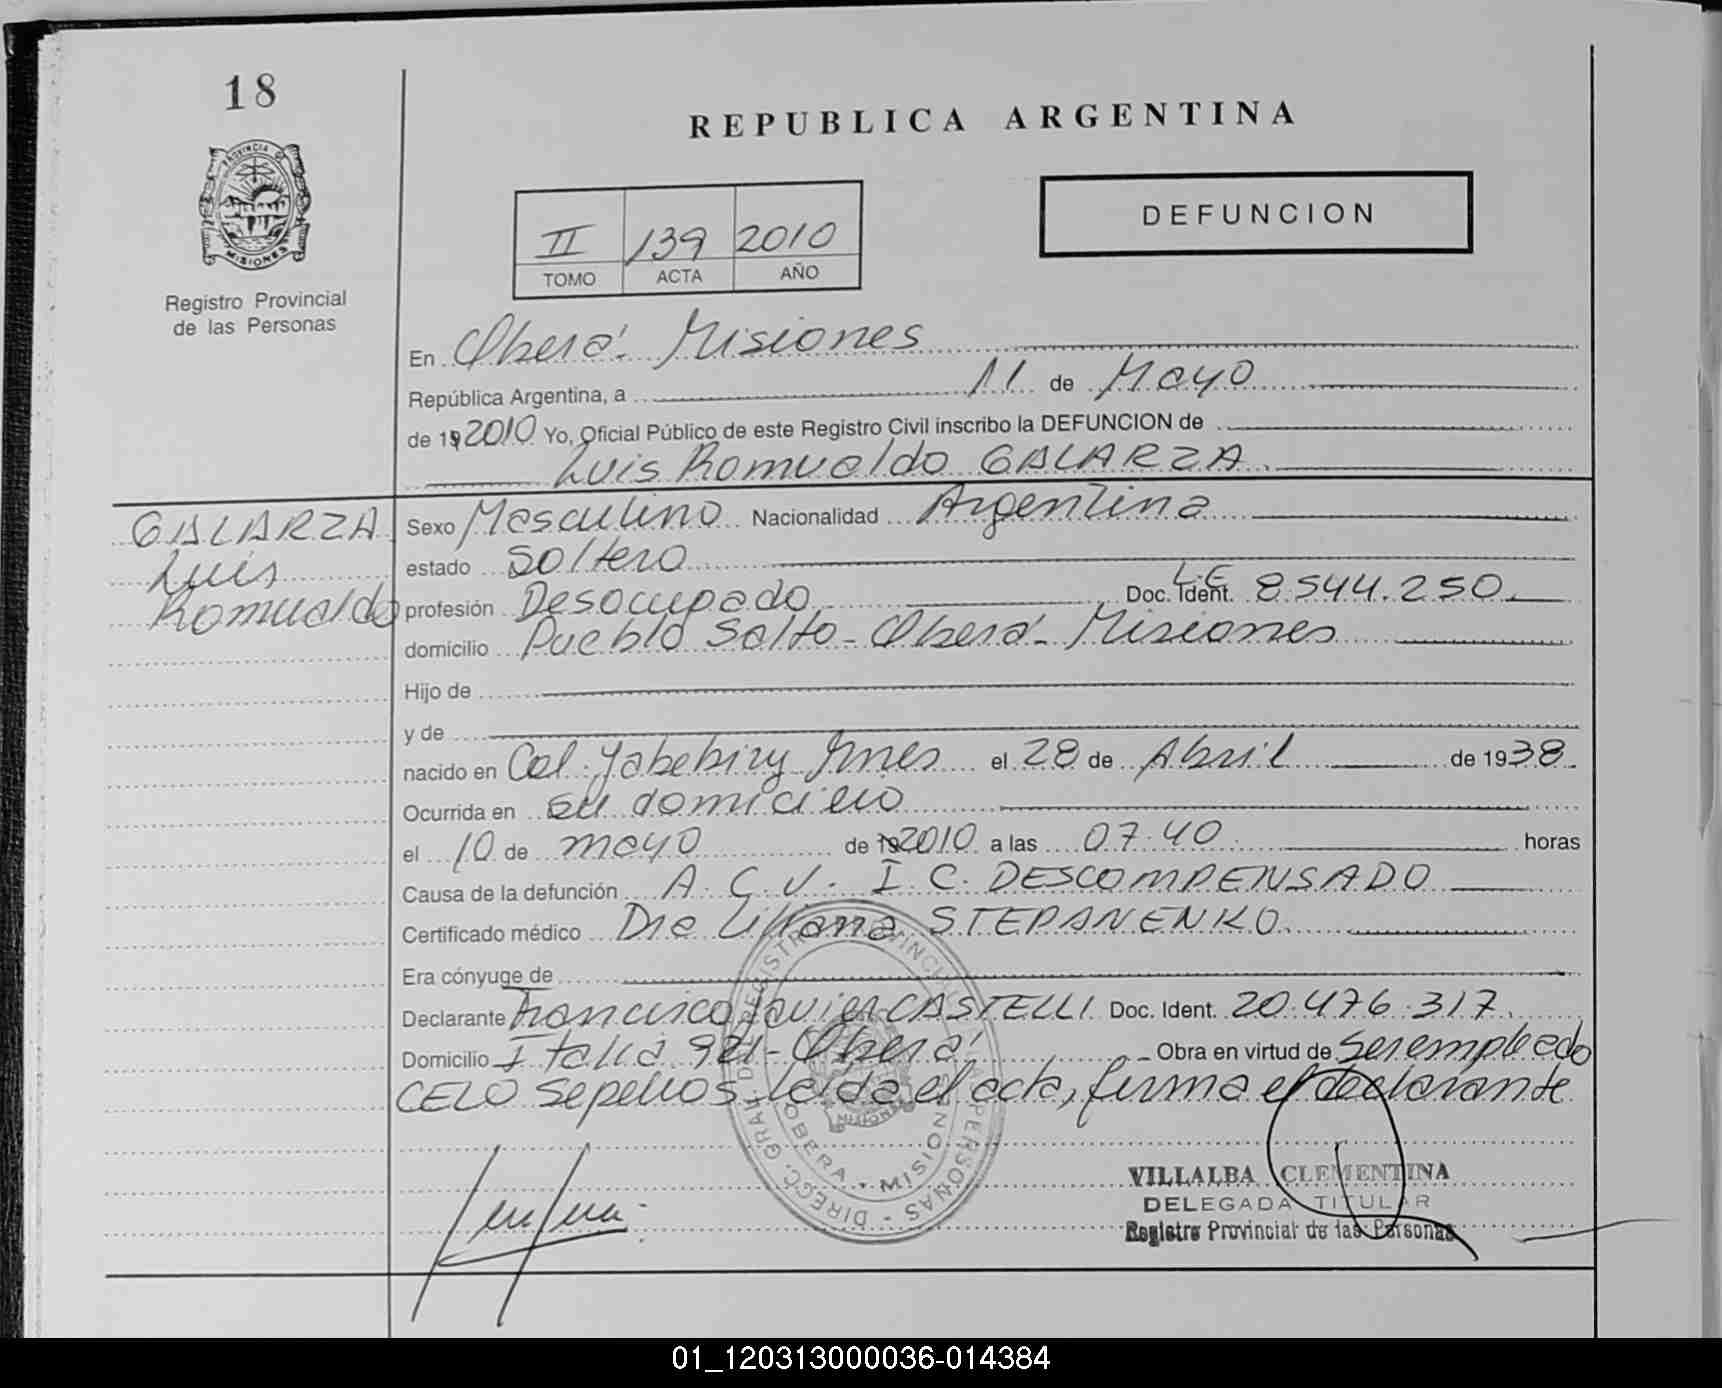 18
REPUBLICA ARGENTINA
PROVINCIA DE
MISIONES
Registro Provincial
de las Personas
II 139 2010
TOMO ACTA AÑO
DEFUNCION
En Oberá. Misiones
República Argentina, a 11 de Mayo
de 19 2010 Yo, Oficial Público de este Registro Civil inscribo la DEFUNCION de
Luis Romualdo GALARZA
GALARZA
Luis
Romualdo
Sexo Masculino Nacionalidad Argentina
estado Soltero
profesión Desocupado Doc. Ident. L.E 8.544.250
domicilio Pueblo Salto - Oberá - Misiones
Hijo de
y de
nacido en Col. Yabebiry Mnes el 28 de Abril de 1938
Ocurrida en su domicilio
el 10 de mayo de 19 2010 a las 07.40 horas
Causa de la defunción A.C.V. I.C. DESCOMPENSADO
Certificado médico Dra Liliana STEPANENKO
Era cónyuge de
Declarante Francisco Javier CASTELLI Doc. Ident. 20.476.317
Domicilio Italia 921 - Oberá - Obra en virtud de ser empleado
CELO Sepelios. Leída el acta, firma el declarante
DIRECC. GRAL. DE REGISTRO PROVINCIAL DE LAS PERSONAS
OBERA - MISIONES
VILLALBA CLEMENTINA
DELEGADA TITULAR
Registro Provincial de las Personas
01_120313000036-014384